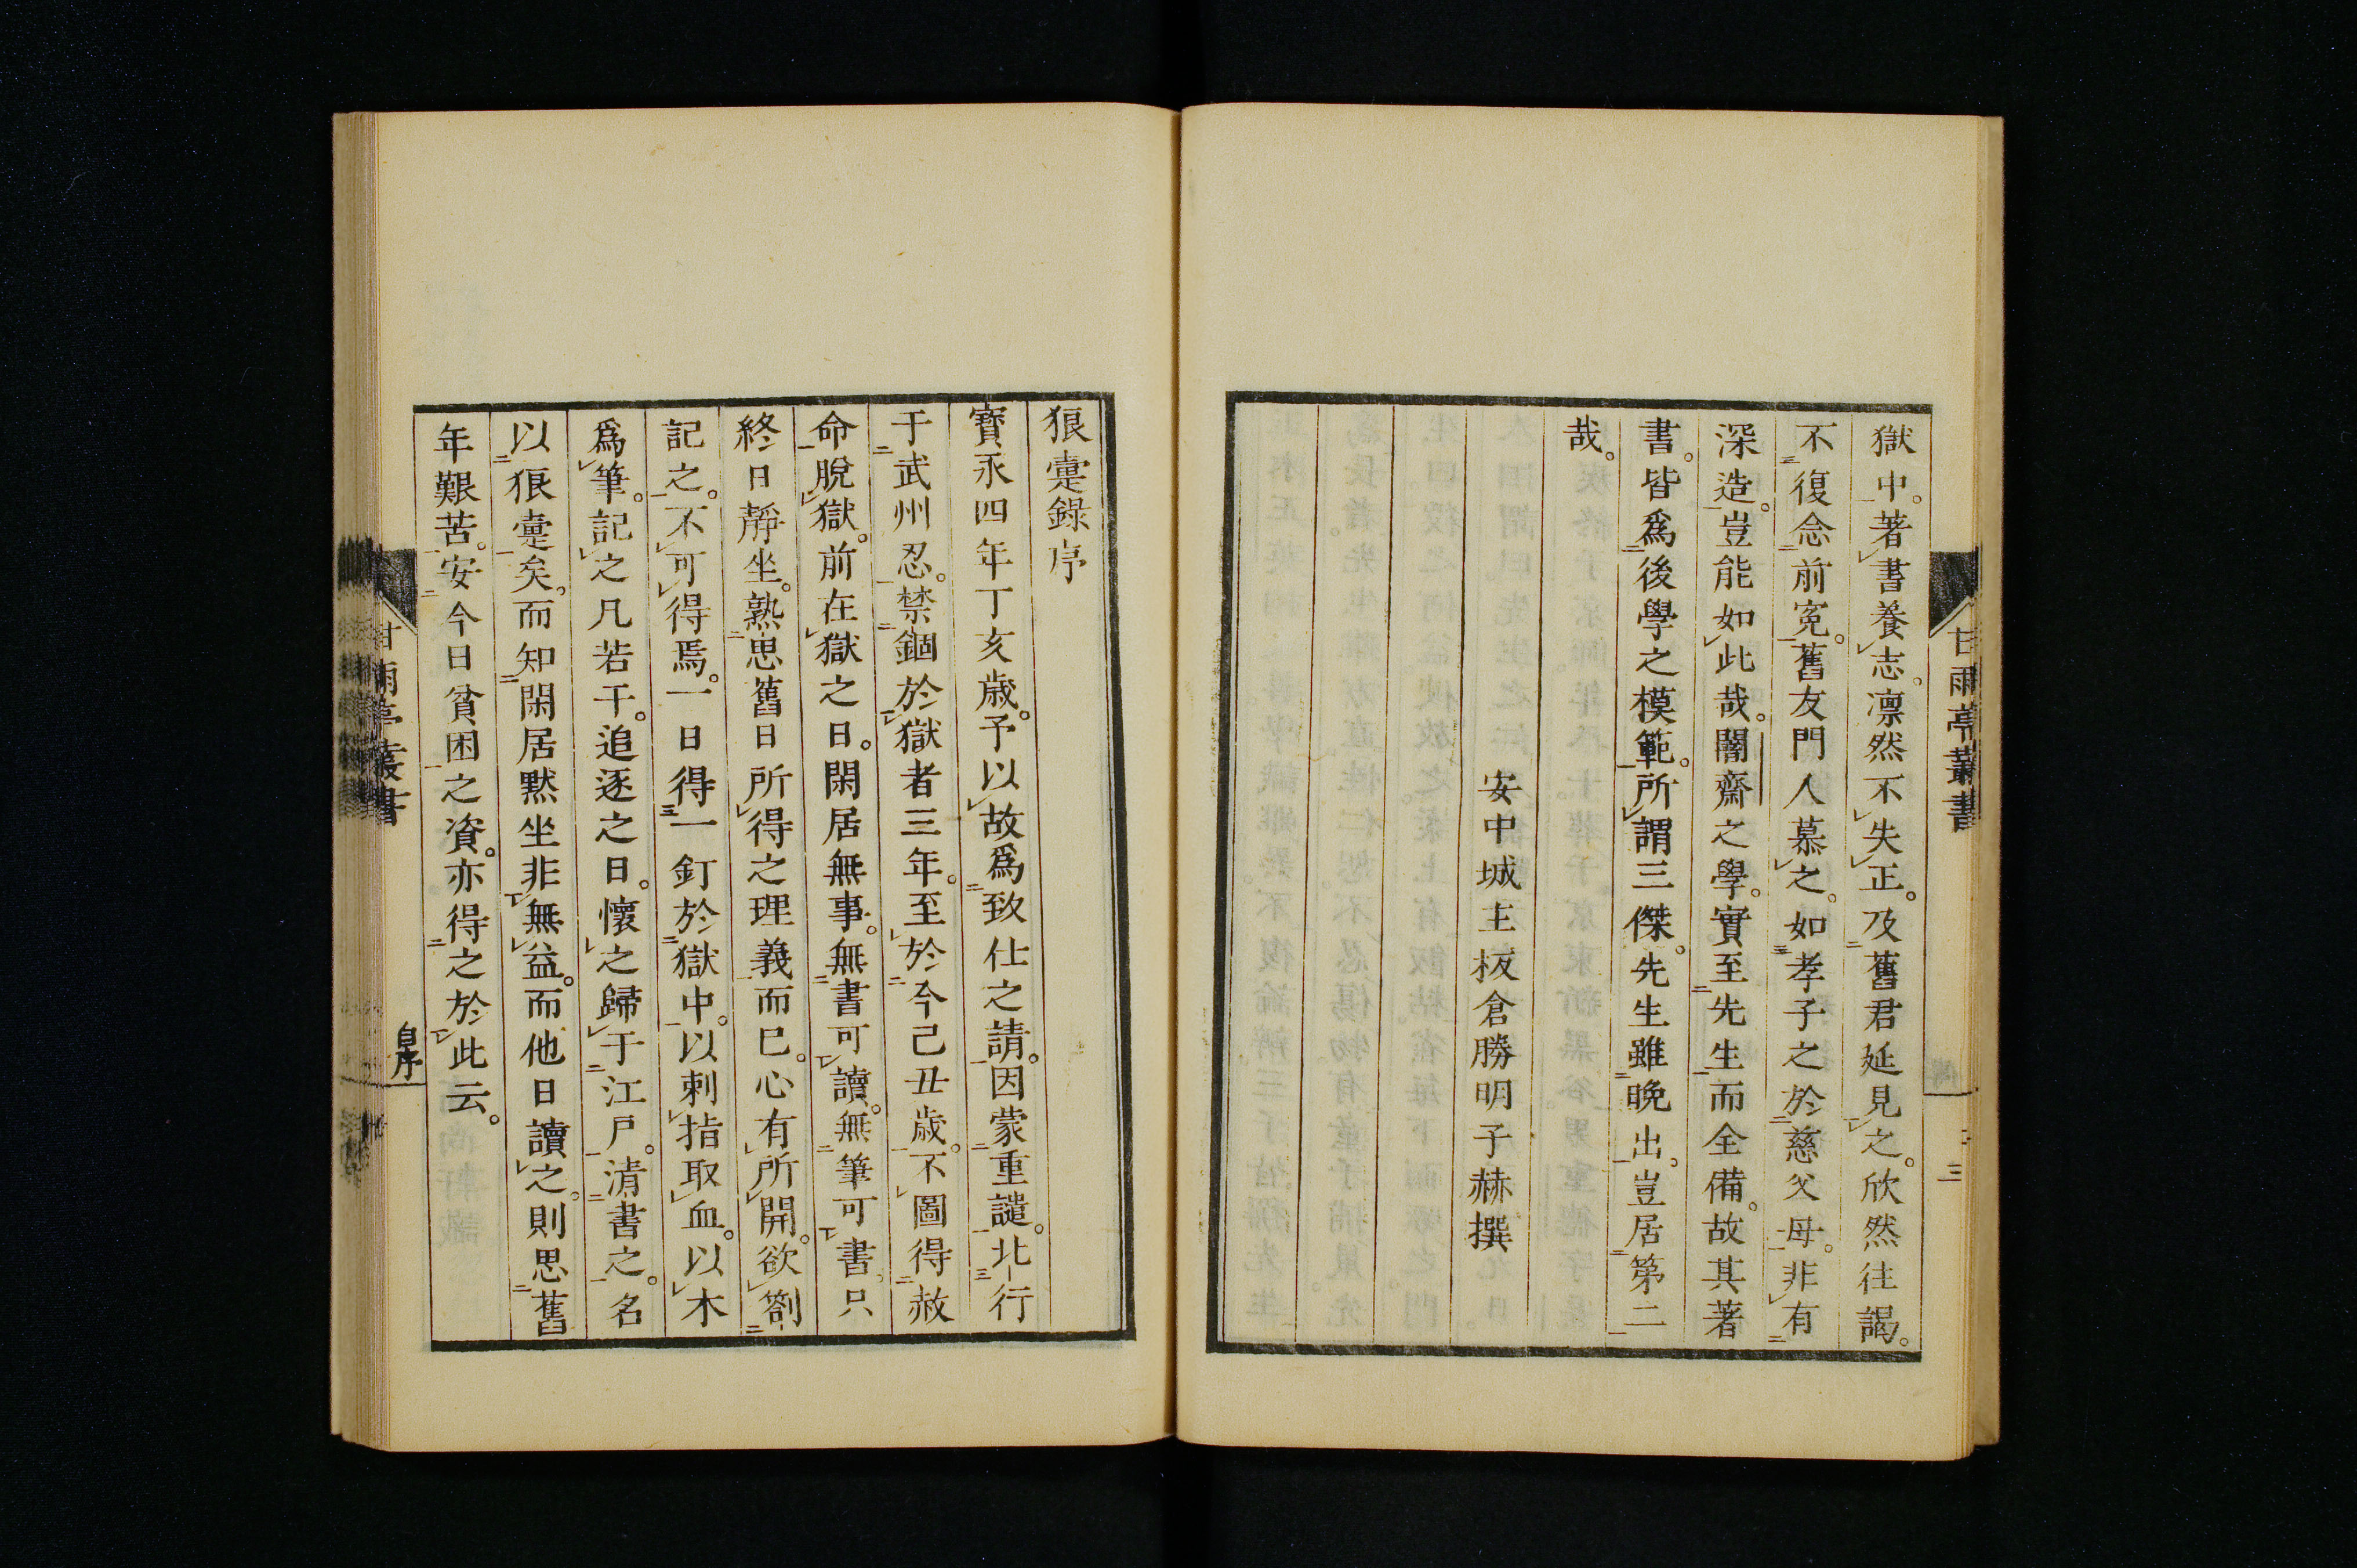 獄中。著書養志。凛然不失正。及舊君延見之。欣然往謁。
不復念前冤。舊友門人慕之。如孝子之於慈父母。非有
深造。豈能如此哉。闇齋之學。實至先生而全備。故其著
書。皆爲後學之模範。所謂三傑。先生雖晩出。豈居第二
哉。
安中城主板倉勝明子赫撰
甘雨亭叢書
三
狼疐錄序
寶永四年丁亥歲。予以故爲致仕之請。因蒙重譴。北行
于武州忍。禁錮於獄者三年。至於今己丑歲。不圖得赦
命脫獄。前在獄之日。閑居無事。無書可讀。無筆可書。只
終日靜坐。熟思舊日所得之理義而已。心有所開。欲劄
記之。不可得焉。一日得一釘於獄中。以刺指取血。以木
爲筆。記之凡若干。追逐之日。懷之歸于江戸。清書之。名
以狼疐矣。而知閑居黙坐非無益。而他日讀之。則思舊
年艱苦。安今日貧困之資。亦得之於此云。
甘雨亭叢書
自序